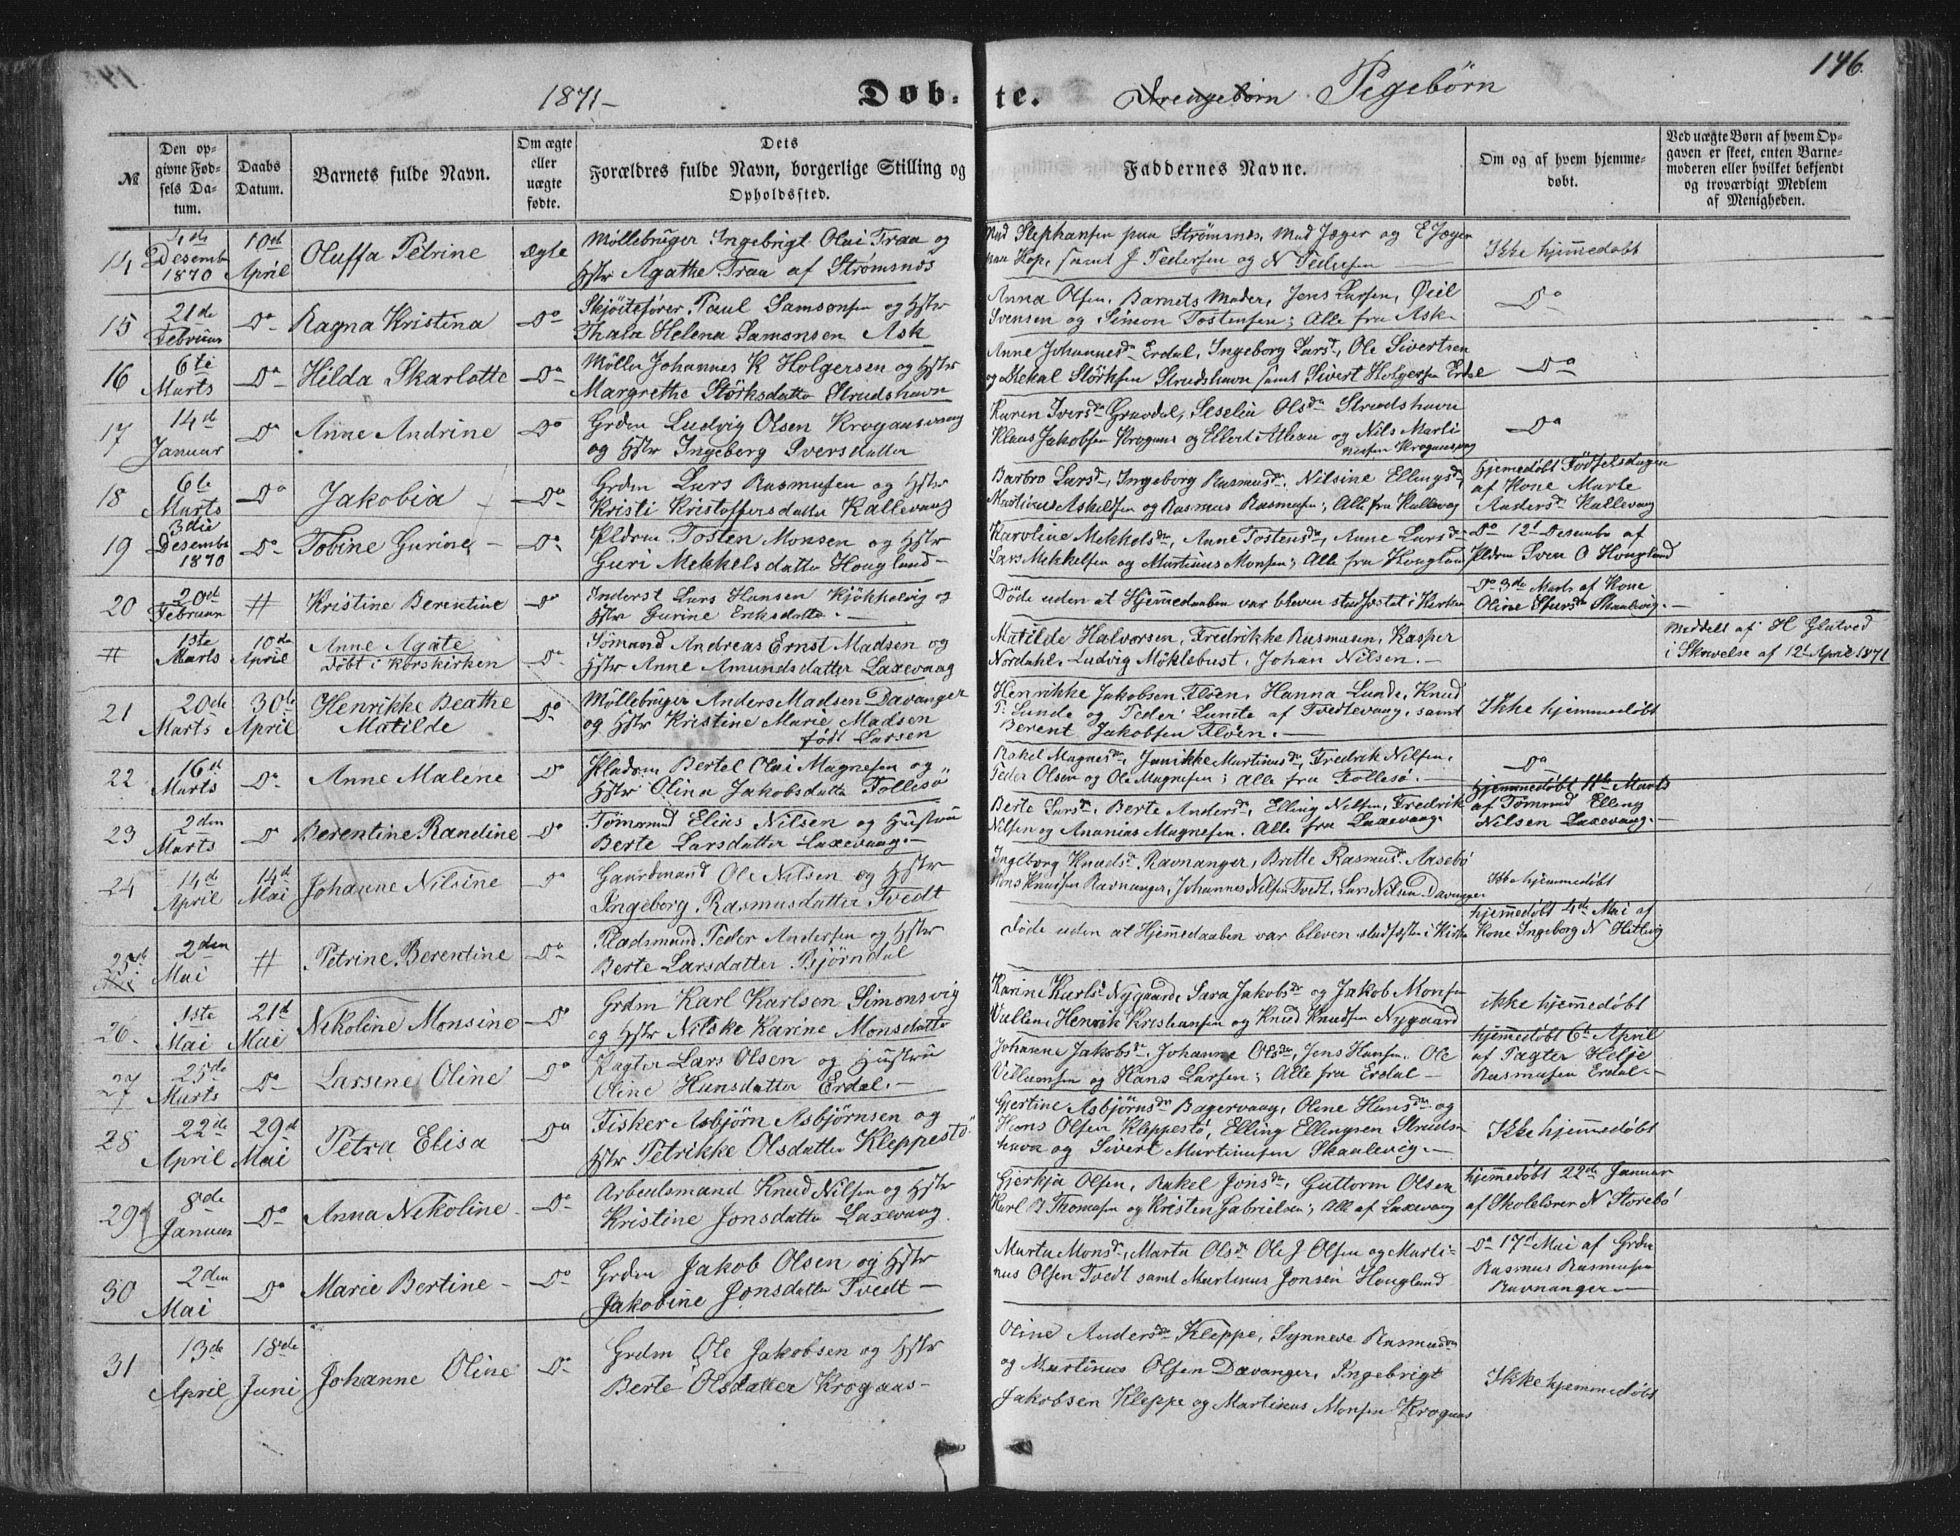 146.
1871-
Døb-te.
Drengebørn Pigebørn
№
Den opgivne Fødsels Datum.
Daabs Datum.
Barnets fulde Navn.
Om ægte eller uægte fødte.
Dets Forældres fulde Navn, borgerlige Stilling og Opholdssted.
Faddernes Navne.
Om og af hvem hjemmedøbt.
Ved uægte Børn af hvem Opgaven er skeet, enten Barnemoderen eller hvilket bekjendt og troværdigt Medlem af Menigheden.
14 Desembr 1870 10de April Oluffa Petrine ægte
Møllebruger Ingebrigt Olai Traa og
Hstr Agathe Traa af Strømsnes
Mad Stephansen paa Strømsnes, Mad Jæger og E Jæger
paa Hop, samt J Pedersen og N Pedersen
Ikke hjemedøbt
15 21de Februar Do Ragna Kristina Do
Skjøitefører Paul Samsonsen og Hstr
Thala Helena Samonsen Ask
Anna Olsen, Barnets Moder, Jens Larsen,
Svensen og Simon Tostensen; Alle fra Ask-
Do
16 6te Marts Do Hilda Skarlotte Do
Møller Johannes K Holgersen og Hstr
Margrethe Størksdatter Strudshavn
Anne Johannesdr Erdal, Ingeborg Larsdr, Ole Sivertsen
og Mekal Størksen Strudshavn samt Sivert Holgersen Erdal
Do
17 14de Januar Do Anne Andrine Do
Grdm Ludvig Olsen Krogaasvaag
og Hstr Ingeborg Iversdatter
Karen Iversdr Gravdal, Seselia Olsdr Strudshavn
Klaus Jakobsen Krogaas og Ellert og Nils Marti
Nilsen Krogaasvaag
Do
18 6te Marts Do Jakobia - Do
Grdm Lars Rasmusen og Hstr
Kristi Kristoffersdatter Kallevaag
Barbro Larsdr, Ingeborg Rasmusdr, Nilsine Ellingsdr
Martinus Askelsen og Rasmus Rasmusen; Alle fra Kallevag
Hjemedøbt Fødselsdagen
af Kone Marte
Andersdr Kallevaag
19 3die Desembr 1870 Do Tobine Gurine - Do
Pldsm Tosten Monsen og Hstr
Guri Mekkelsdatter Hougland -
Karoline Mekkelsdr, Anne Tostensdr, Anne Larsdr
Lars Mekkelsen og Martinus Monsen; Alle fra Hougland
Do 12te Desembr af
Pldsm Sven O Hougland
20 20de Februar # Kristine Berentine Do
Inderst Lars Hansen Kjøkkelvig og
Hstr Gurine Eriksdatter. -
Døde uden at Hjemedaaben var bleven stadfæstet i Kirken
Do 3de Marts af Kone
Oline Skaalevig. -
# 1ste Marts 10de April Anne Agate
Døbt i Korskirken Do
Sømand Andreas Ernst Madsen og
Hstr Anne Amundsdatter Laxevaag
Matilde Halvorsen, Fredrikke Rasmusen, Kasper
Nordahl, Ludvig Møklebust, Johan Nilsen. -
Meddelt af H Glatved
i Skrivelse af 12te April 1871
21 20de Marts 30te April Henrikke Beathe
Matilde Do
Møllebruger Anders Madsen Davanger
og Hstr Kristine Marie Madsen
født Larsen
Henrikke Jakobsen Fløen, Hanna Lunde, Knud
P. Lunde og Peder Lunde af Tvedtevaag, samt
Berent Jakobsen Fløen. -
Ikke hjemmedøbt
22 16de Marts Do Anne Malene Do
Pladsm Bertel Olai Magnesen og
Hstr Olina Jakobsdatter Follesø
Rakel Magnesdr, Janikke Martinusdr, Fredrik Nilsen,
Peder Olsen og Ole Magnesen; Alle fra Follesø. -
Do
23 2den Marts Do Berentine Randine Do
Tømmnd Elias Nilsen og Hustru
Berte Larsdatter Laxevaag. -
Berte Larsdr, Berte Andersdr, Elling Nilsen, Fredrik
Nilsen og Ananias Magnesen. Alle fra Laxevaag.
hjemmedøbt 11te Marts
af Tømmnd Elling
Nilsen Laxevaag. -
24 14de April 14de Mai Johanne Nilsine Do
Gaardmand Ole Nilsen og Hstr
Ingeborg Rasmusdatter Tvedt
Ingeborg Knudsdr Ravnanger, Britte Rasmusdr Aasebø
Mons Knudsen Ravnanger, Johannes Nilsen Tvedt, Lars Nilsen Davanger
Ikke hjemmedøbt
25 2den Mai # Petrine Berentine Do
Pladsmand Peder Andersen og Hstr
Berte Larsdatter Bjørndal
Døde uden at Hjemmedaaben var bleven stadfæstet i Kirke
hjemmedøbt 4de Mai af
Kone Ingeborg N Hetlvig
26. 1ste Mai 21de Mai Nikoline Monsine Do
Grdm Karl Karlsen Simonsvig
og Hstr Nilske Karine Monsdatter
Karine Karlsdr Nygaard, Sara Jakobsdr og Jakob Monsen
Vallen, Henrik Kristiansen og Knud Knudsen Nygaard
ikke hjemedøbt
27 25de Marts Do Larsine Oline Do
Pagter Lars Olsen og Hustru
Oline Hansdatter Erdal. -
Johanne Jakobsdr, Johanne Olsdr, Jens Hansen, Ole
Villumsen og Hans Larsen; Alle fra Erdal -
hjemmedøbt 6te April
af Pagter Helje
Rasmusen Erdal. -
28 22de April 29de Mai Petra Elisa Do
Fisker Asbjørn Asbjørnsen og
Hstr Petrikke Olsdatter Kleppestø
Gjertine Asbjørnsdr Bagervaag, Oline Hansdr og
Hans Olsen Kleppestø, Elling Ellingsen Struds-
havn og Sivert Martinusen Skaalevig. -
Ikke hjemmedøbt
29 8de Januar Do Anna Nikoline - Do
Arbeidsmand Knud Nilsen og Hstr
Kristine Jonsdatter Laxevaag
Gjerkja Olsen, Rakel Jonsdr, Guttorm Olsen
Karl J Thomasen og Kristen Gabrielsen; Alle af Laxevaag
hjemmedøbt 22de Januar
af Skolelærer N Storebø
30 2den Mai Do Marie Bertine - Do
Grdm Jakob Olsen og Hstr
Jakobine Jonsdatter Tvedt -
Marta Monsdr, Marta Olsdr Ole J Olsen og Marti-
nus Olsen Tvedt samt Martinus Jonsen Hougland
Do 17de Mai af Grdm
Rasmus Rasmusen
Ravnanger -
31 13de April 18de Juni Johanne Oline Do
Grdm Ole Jakobsen og Hstr
Berte Olsdatter Krogaas -
Oline Andersdr Kleppe, Synneve Rasmusdr
og Martinus Olsen Davanger, Ingebrigt
Jakobsen Kleppe og Martinus Monsen Krogaas
Ikke hjemmedøbt